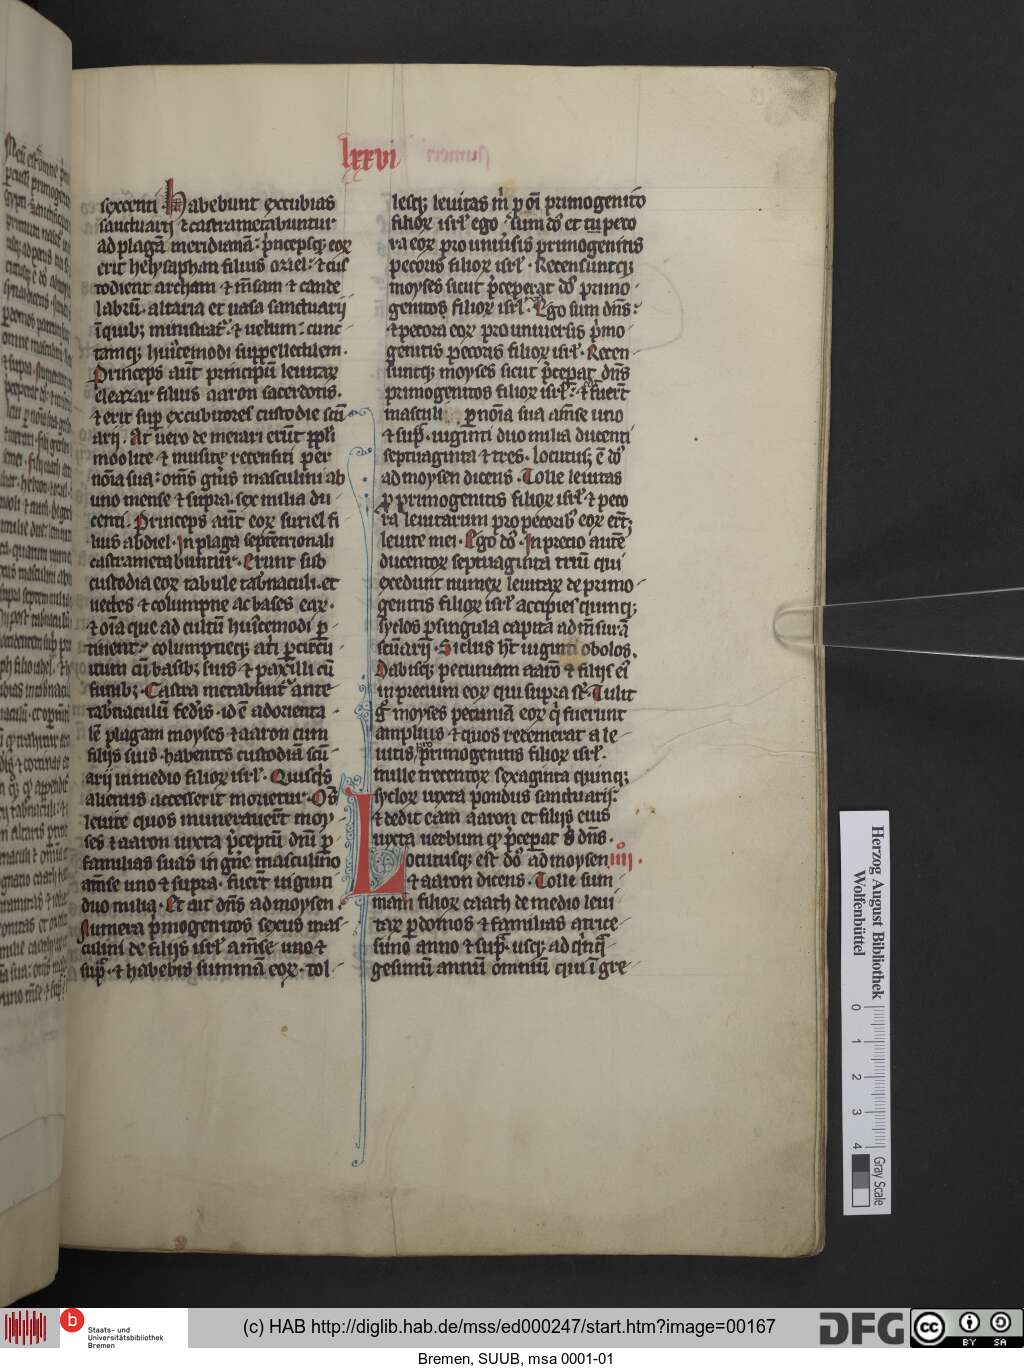 lxxvi
sexcenti habebunt excubias
sanctuarij ⁊ castrametabuntur
ad plagā meridianā: p̄ncepsqꝫ eoꝝ
erit helysaphan filius oziel: ⁊ cus
todient archam ⁊ m̄sam ⁊ cande
labrū. altaria et uasa sanctuarij
ī quibꝫ ministrat᷑. ⁊ uelum: cunc
tamqꝫ huiꝰcemodi suppellectilem.
Princeps aūt principū leuitaꝝ
eleazar filius aaron sacerdotis.
⁊ erit sup̄ excubitores custodie scū
arij. At uero de merari erūt pp̄li
moolite ⁊ musite recensiti per
nōia sua: om̄s gn̄is masculini ab
uno mense ⁊ supra. sex milia du
centi. Princeps aūt eoꝝ suriel fi
lius abdiel. In plaga septētrionali
castrametabuntur. Erunt sub
custodia eoꝝ tabule tab̄naculi. et
uectes ⁊ columpne ac bases eaꝝ.
⁊ oīa que ad cultū huiꝰcemodi p̄
tinent: columpneqꝫ atri p̄ circui
tum cū basibꝫ suis ⁊ paxilli cū
funibꝫ. Castra metabunt᷑ ante
tab̄naculū fed̄is. id ē ad orienta
lē plagam moyses ⁊ aaron cum
filijs suis. habentes custodiā scū
arij in medio filioꝝ isrl̄. Quisq̄s
alienus accesserit morietur. Om̄s
leuite quos numerauerūt moy
ses ⁊ aaron iuxta p̄ceptū dn̄i p̄
familias suas in gn̄e masculino
a m̄se uno ⁊ supra. fuerūt uiginti
duo milia. Et ait dn̄s ad moysen.
Numera p̄mogenitos sexus mas
culini de filijs isrl̄ a m̄se uno ⁊
sup̄. ⁊ habebis summā eoꝝ. tol
lesqꝫ leuitas m̄ p̄ oī primogenito
filioꝝ isrl̄ ego sum dn̄s et tu peco
ra eoꝝ pro uniūsis primogenitis
pecoris filioꝝ isrl̄. Recensuitqꝫ
moyses sicut p̄ceperat dn̄s primo
genitos filioꝝ isrl̄. Ego sum dn̄s:
⁊ pecora eoꝝ pro uniuersis p̄mo
genitis pecoris filioꝝ isrl̄. Recen
suitqꝫ moyses sicut p̄cepat dn̄s
primogenitos filioꝝ isrl̄: ⁊ fuerūt
masculi p̄ nōia sua a m̄se uno
⁊ sup̄. uiginti duo milia ducenti
septuaginta ⁊ tres. locutusqꝫ ē dn̄s
ad moysen dicens. Tolle leuitas
p̄ primogenitis filioꝝ isrl̄ ⁊ peco
ra leuitarum pro pecoribꝰ eoꝝ erūtqꝫ
leuite mei. Ego dn̄s. In precio autē
ducentoꝝ septuaginta triū qui
excedunt numeꝝ leuitaꝝ de primo
genitis filioꝝ isrl̄ accipies quinqꝫ
syclos p̄ singula capita ad m̄surā
scūarij. Siclus h̄t uiginti obolos.
Dabisqꝫ pecuniam aarō ⁊ filijs eiꝰ
in precium eoꝝ qui supra sūt. Tulit
gͦ moyses pecuniā eoꝝ q̄ fuerunt
amplius ⁊ quos redemerat a le
uitis p̄ primogenitis filioꝝ isrl̄.
mille trecentoꝝ sexaginta quinqꝫ
sycloꝝ iuxta pondus sanctuarij:
⁊ dedit eam aaron et filijs eius
iuxta uerbum qͦ p̄cepat s̄ dn̄s.
Locutusqꝫ est dn̄s ad moysen iiij.
⁊ aaron dicens. Tolle sum
mam filioꝝ caath de medio leui
taꝝ p̄ domos ⁊ familias a trice
simo anno ⁊ sup̄. usqꝫ ad q̄nq̄
gesimū annū omniū qui ī gre
Herzog August Bibliothek
Wolfenbüttel
0 1 2 3 4
Gray Scale
b
Staats- und
Universitätsbibliothek
Bremen
(c) HAB http://diglib.hab.de/mss/ed000247/start.htm?image=00167
DFG
cc BY SA
Bremen, SUUB, msa 0001-01